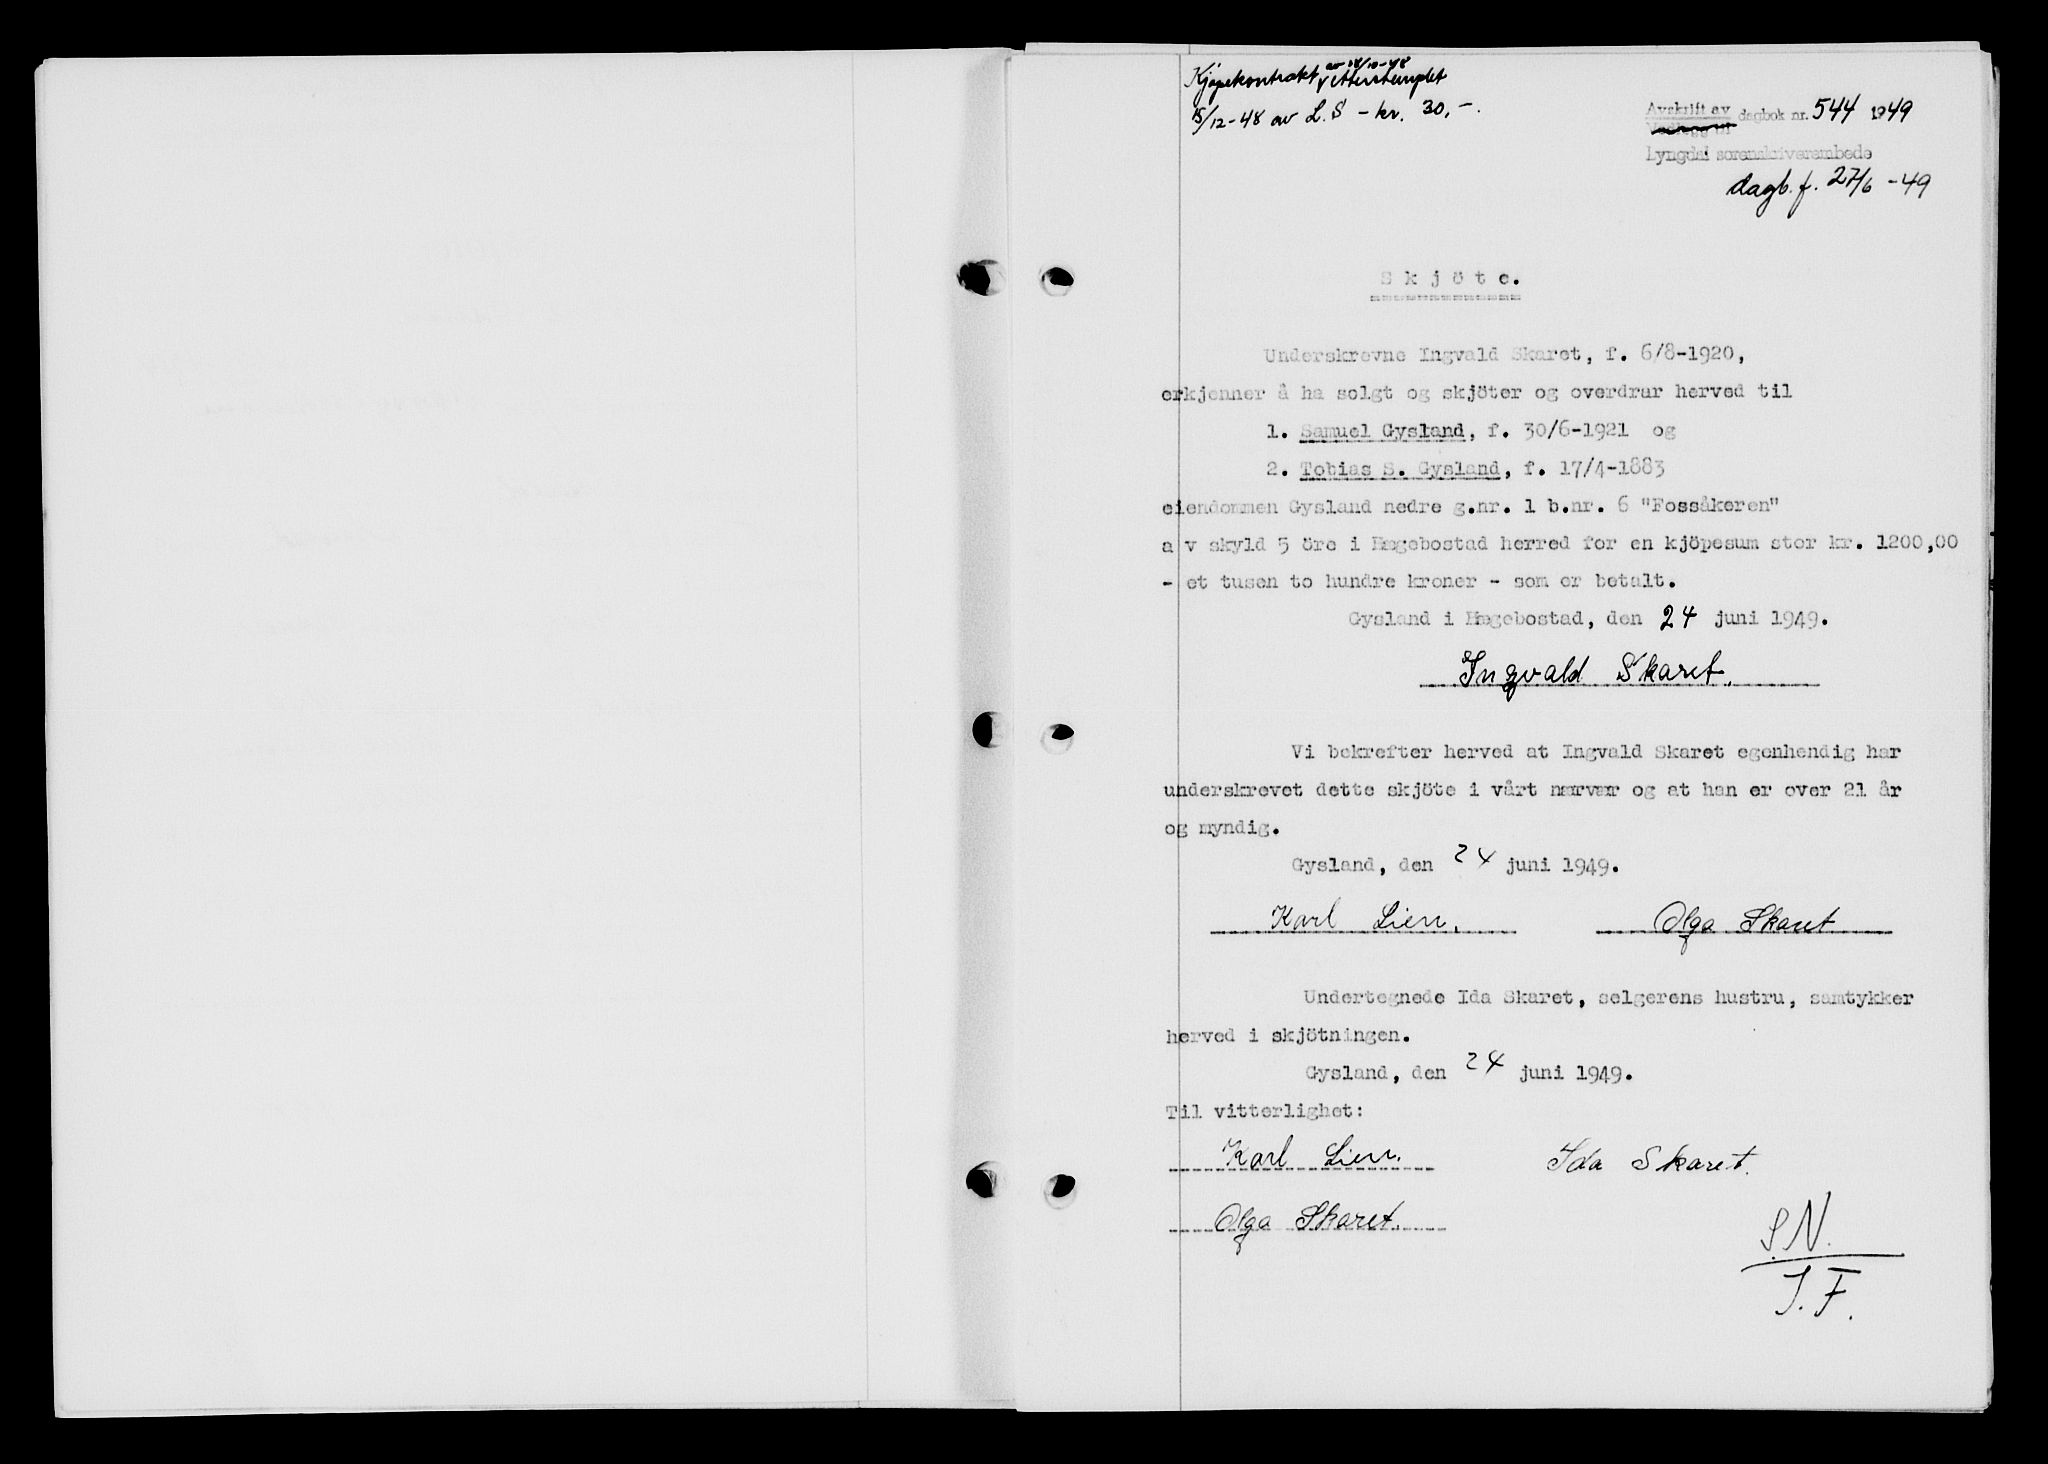 Kjøpekontrakt av 18/10-48 etterstemplet
15/12-48 av L.S - kr. 30,-.
Avskrift av
Vedlegg til
dagbok nr. 544 1949
Lyngdal sorenskriverembede
dagb. f. 27/6 -49
Skjöte.
Underskrevne Ingvald Skaret, f. 6/8-1920,
erkjenner å ha solgt og skjöter og overdrar herved til
1. Samuel Gysland, f. 30/6-1921 og
2. Tobias S. Gysland, f. 17/4-1883
eiendommen Gysland nedre g.nr. 1 b.nr. 6 "Fossåkeren"
a v skyld 5 öre i Hægebostad herred for en kjöpesum stor kr. 1200,00
- et tusen to hundre kroner - som er betalt.
Gysland i Hægebostad, den 24 juni 1949.
Ingvald Skaret.
Vi bekrefter herved at Ingvald Skaret egenhendig har
underskrevet dette skjöte i vårt nærvær og at han er over 21 år
og myndig.
Gysland, den 24 juni 1949.
Karl Lien. Olga Skaret
Undertegnede Ida Skaret, selgerens hustru, samtykker
herved i skjötningen.
Gysland, den 24 juni 1949.
Til vitterlighet:
Karl Lien. Ida Skaret.
Olga Skaret.
S.N.
J.F.